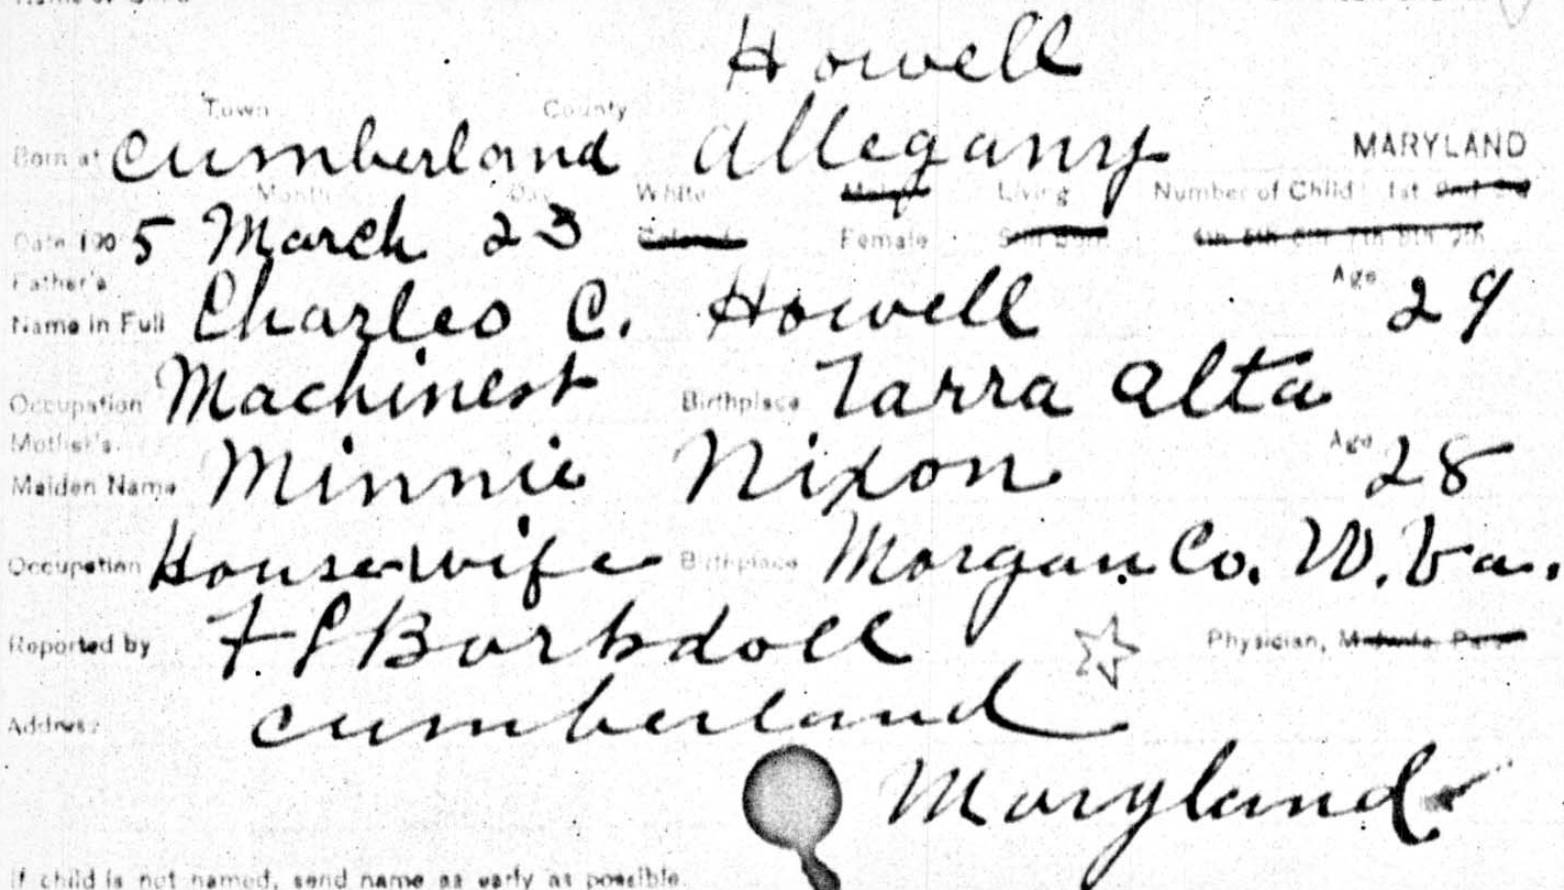 Howell
Town County
Born at Cumberland Allegany MARYLAND
Month Day White Male Living Number of Child 1st 2nd 3d
Date 190 5 March 23 Colored Female Still Born 4th 5th 6th 7th 8th 9th
Father's Age
Name in Full Charles C. Howell 29
Occupation Machinest Birthplace Tarra Alta
Mother's Age
Maiden Name Minnie Nixon 28
Occupation Housewife Birthplace Morgan Co. W. Va.
Reported by Physician, Midwife
Address Cumberland
Maryland
If child is not named, send name as early as possible.